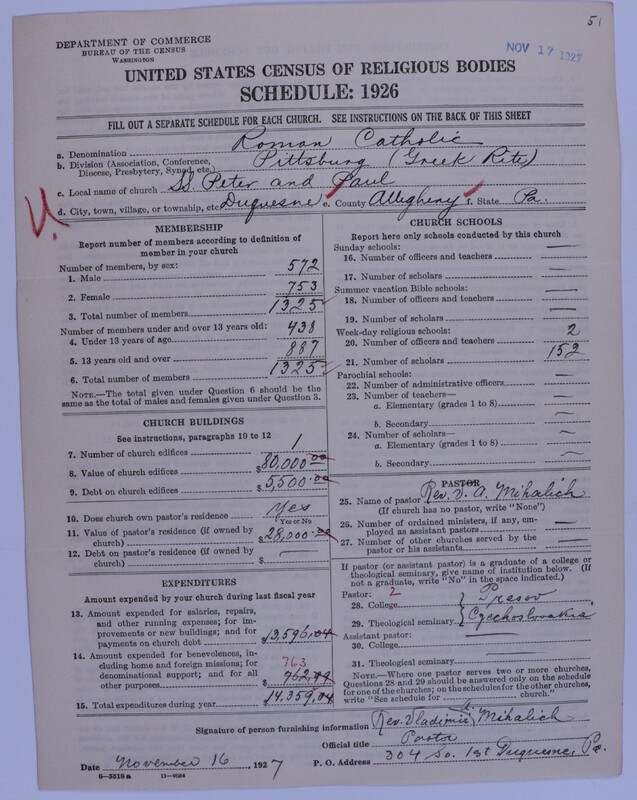 51
DEPARTMENT OF COMMERCE
BUREAU OF THE CENSUS
WASHINGTON
NOV 17 1927
UNITED STATES CENSUS OF RELIGIOUS BODIES
SCHEDULE: 1926
FILL OUT A SEPARATE SCHEDULE FOR EACH CHURCH. SEE INSTRUCTIONS ON THE BACK OF THIS SHEET
a. Denomination Roman Catholic
b. Division (Association, Conference, Diocese, Presbytery, Synod, etc.) Pittsburg (Greek Rite)
c. Local name of church SS. Peter and Paul
d. City, town, village, or township, etc. Duquesne e. County Allegheny f. State Pa.
MEMBERSHIP
Report number of members according to definition of
member in your church
Number of members, by sex:
1. Male 572
2. Female 753
3. Total number of members 1325
Number of members under and over 13 years old:
4. Under 13 years of age 438
5. 13 years old and over 887
6. Total number of members 1325
NOTE.—The total given under Question 6 should be the
same as the total of males and females given under Question 3.
CHURCH BUILDINGS
See instructions, paragraphs 10 to 12
7. Number of church edifices 1
8. Value of church edifices $80,000.00
9. Debt on church edifices $5,500.00
10. Does church own pastor's residence Yes
Yes or No
11. Value of pastor's residence (if owned by
church) $28,000.00
12. Debt on pastor's residence (if owned by
church) $ —
EXPENDITURES
Amount expended by your church during last fiscal year
13. Amount expended for salaries, repairs,
and other running expenses; for im-
provements or new buildings; and for
payments on church debt $13,596.04
14. Amount expended for benevolences, in-
cluding home and foreign missions; for 763
denominational support; and for all
other purposes $762.99
15. Total expenditures during year $14,359.04
CHURCH SCHOOLS
Report here only schools conducted by this church
Sunday schools:
16. Number of officers and teachers —
17. Number of scholars —
Summer vacation Bible schools:
18. Number of officers and teachers —
19. Number of scholars —
Week-day religious schools:
20. Number of officers and teachers 2
21. Number of scholars 152
Parochial schools:
22. Number of administrative officers —
23. Number of teachers—
a. Elementary (grades 1 to 8) —
b. Secondary —
24. Number of scholars—
a. Elementary (grades 1 to 8) —
b. Secondary —
PASTOR
25. Name of pastor Rev. V. A. Mihalich
(If church has no pastor, write "None")
26. Number of ordained ministers, if any, em-
ployed as assistant pastors —
27. Number of other churches served by the
pastor or his assistants —
If pastor (or assistant pastor) is a graduate of a college or
theological seminary, give name of institution below. (If
not a graduate, write "No" in the space indicated.)
Pastor: 2
28. College Presov
29. Theological seminary Czechoslovakia
Assistant pastor:
30. College —
31. Theological seminary —
NOTE.—Where one pastor serves two or more churches,
Questions 28 and 29 should be answered only on the schedule
for one of the churches; on the schedules for the other churches,
write "See schedule for church."
Signature of person furnishing information Rev. Vladimir A. Mihalich
Official title Pastor
Date November 16 1927 P. O. Address 304 So. 1st Duquesne, Pa.
8—5518 a 11—9084